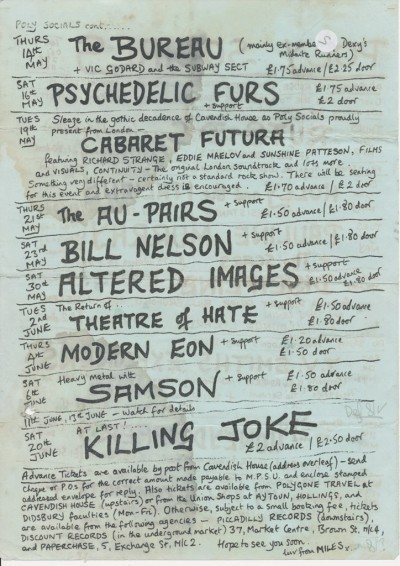 POLY SOCIALS cont.......
THURS 14th MAY The BUREAU (mainly ex-members Dexy's Midnite Runners)
+ VIC GODARD and the SUBWAY SECT £1.75 advance / £2.25 door
SAT 16th MAY PSYCHEDELIC FURS + support £1.75 advance £2 door
TUES 19th MAY Sleaze in the gothic decadence of Cavendish House as Poly Socials proudly
present from London -
CABARET FUTURA!
featuring RICHARD STRANGE, EDDIE MAELOV and SUNSHINE PATTESON, FILMS
and VISUALS, CONTINUITY - The original London soundtrack and lots more.
Something very different - certainly not a standard rock show. There will be seating
for this event and extravagent dress is encouraged. £1.70 advance / £2 door
THURS 21st MAY The AU-PAIRS + support £1.50 advance / £1.80 door
SAT 23rd MAY BILL NELSON + support £1.50 advance / £1.80 door
SAT 30th MAY ALTERED IMAGES + support £1.50 advance £1.80 door
TUES 2nd JUNE The Return of.. THEATRE of HATE + support £1.50 advance £1.80 door
THURS 4th JUNE MODERN EON + support £1.20 advance £1.50 door
SAT 6th JUNE Heavy metal with SAMSON + support £1.50 advance £1.80 door
11th JUNE, 13th JUNE - watch for details
SAT 20th JUNE AT LAST! ..... KILLING JOKE £2 advance / £2.50 door
Advance Tickets are available by post from Cavendish House (address overleaf) - send
cheque or P.O.s for the correct amount made payable to M.P.S.U. and enclose stamped
addressed envelope for reply. Also tickets are available from POLYGONE TRAVEL at
CAVENDISH HOUSE (upstairs) or from the Union Shops at AYTOUN, HOLLINGS, and
DIDSBURY faculties (Mon-Fri). Otherwise, subject to a small booking fee, tickets
are available from the following agencies - PICCADILLY RECORDS (downstairs),
DISCOUNT RECORDS (in the underground market) 37, Market Centre, Brown St, M/c 4,
and PAPERCHASE, 5, Exchange St. M/C 2. Hope to see you soon
luv from MILES x